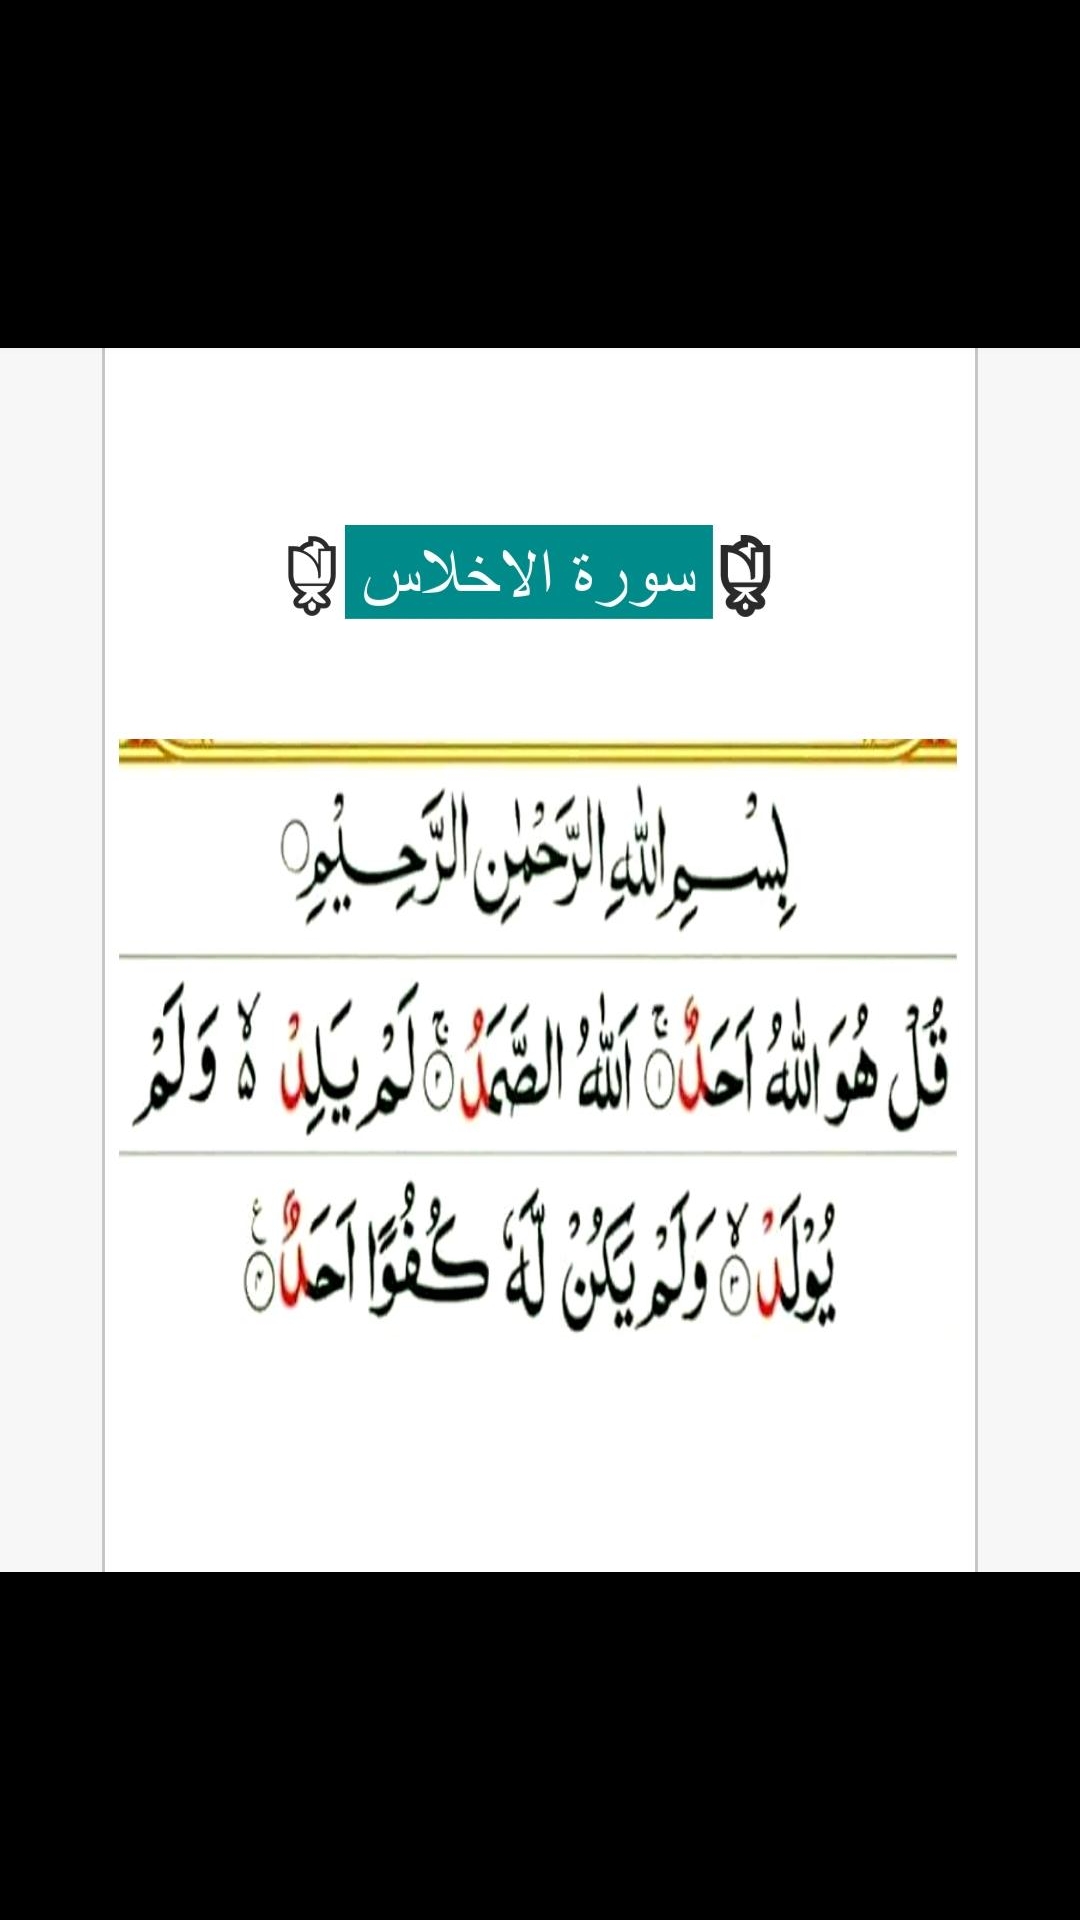 سورة الاخلاس
بِسْمِ اللّٰهِ الرَّحْمٰنِ الرَّحِيْمِ۝
قُلْ هُوَ اللّٰهُ اَحَدٌ ۚ‏﴿۱﴾ اَللّٰهُ الصَّمَدُ ۚ‏﴿۲﴾ لَمْ يَلِدْ ۙ۵ وَلَمْ
يُوْلَدْ ۙ‏﴿۳﴾ وَلَمْ يَكُنْ لَّهٗ كُفُوًا اَحَدٌ ﴿۴﴾ ع